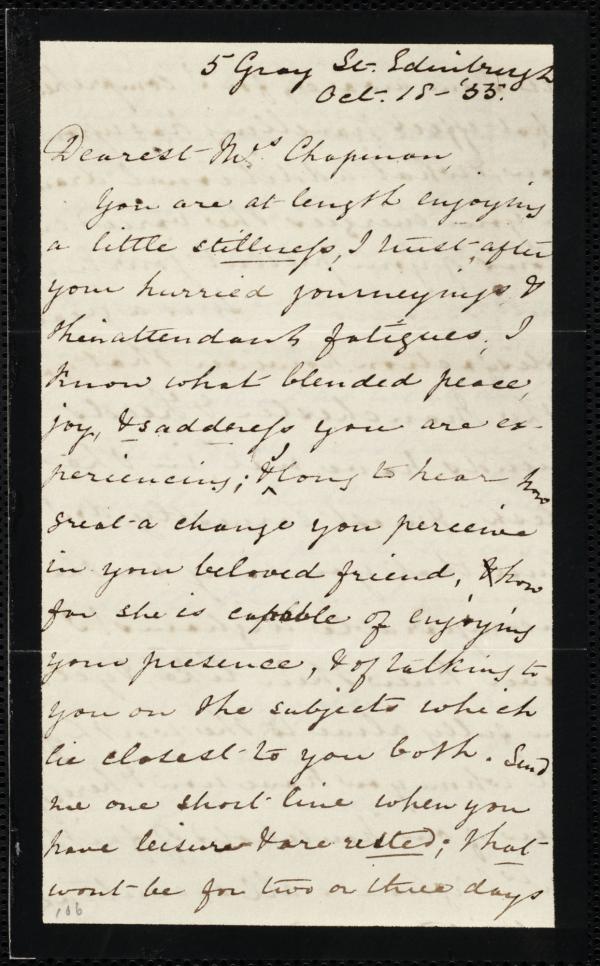 5 Gray St. Edinburgh
Oct. 18 - '55.
Dearest Mrs Chapman,
You are at length enjoying
a little stillness, I trust, after
your hurried journeyings &
their attendant fatigues. I
know what blended peace,
joy, & sadness you are ex-
periencing; & I long to hear how
great a change you perceive
in your beloved friend, & how
far she is capable of enjoying
your presence, & of talking to
you on the subjects which
lie closest to you both. Send
me one short line when you
have leisure & are rested; that
wont be for two or three days
106